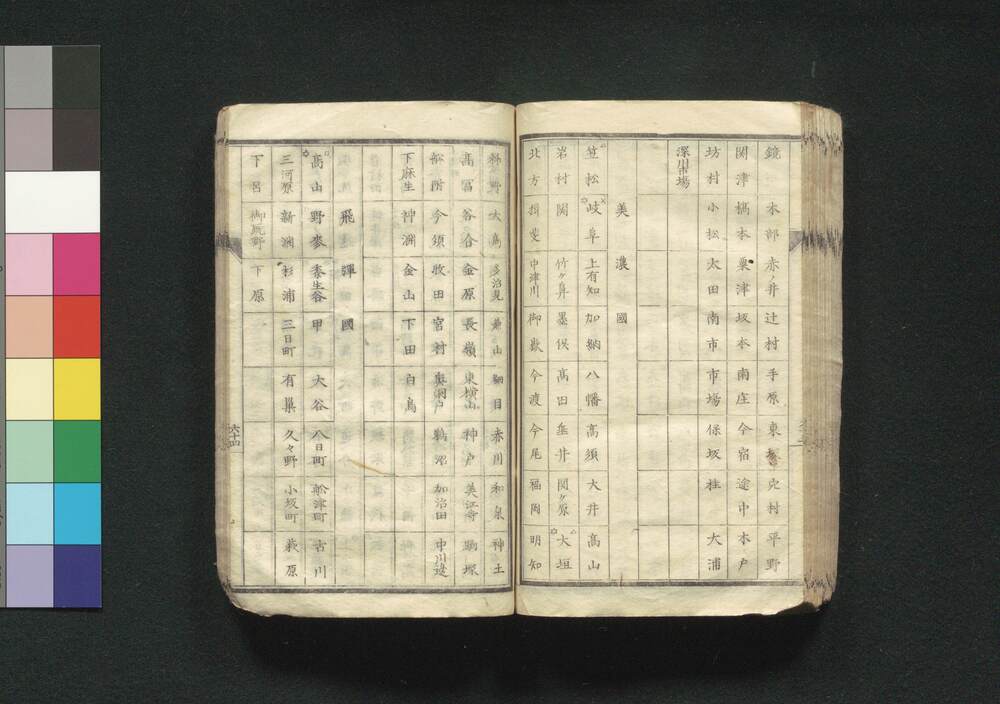 鏡 本部 赤ノ井 辻村 手原 東 村 平野
関津 橋本 粟津 坂本 南庄 今宿 途中 木戸
坊村 小松 太田 南市 市場 保坂 桂 大浦
深川市場
美濃國
笠松 岐阜 上有知 加納 八幡 高須 大井 高山
岩村 関 竹ケ鼻 墨俣 高田 垂井 関ケ原 大垣
北方 揖斐 中津川 御嵩 今渡 今尾 福岡 明知
野 大島 多治見 兼山 細目 赤川 和泉 神土
高冨 谷合 金原 長嶺 東横山 神戸 美江寺 駒塚
船附 今須 牧田 宮村 奥洞戸 鵜沼 加治田 中川邉
下麻生 神渕 金山 下田 白鳥
飛彈國
高山 野麥 香生谷 甲 大谷 八日町 舩津町 古川
三河原 新渕 杉浦 三日町 有巣 久々野 小坂町 萩原
下呂 御厩野 下原
六十四